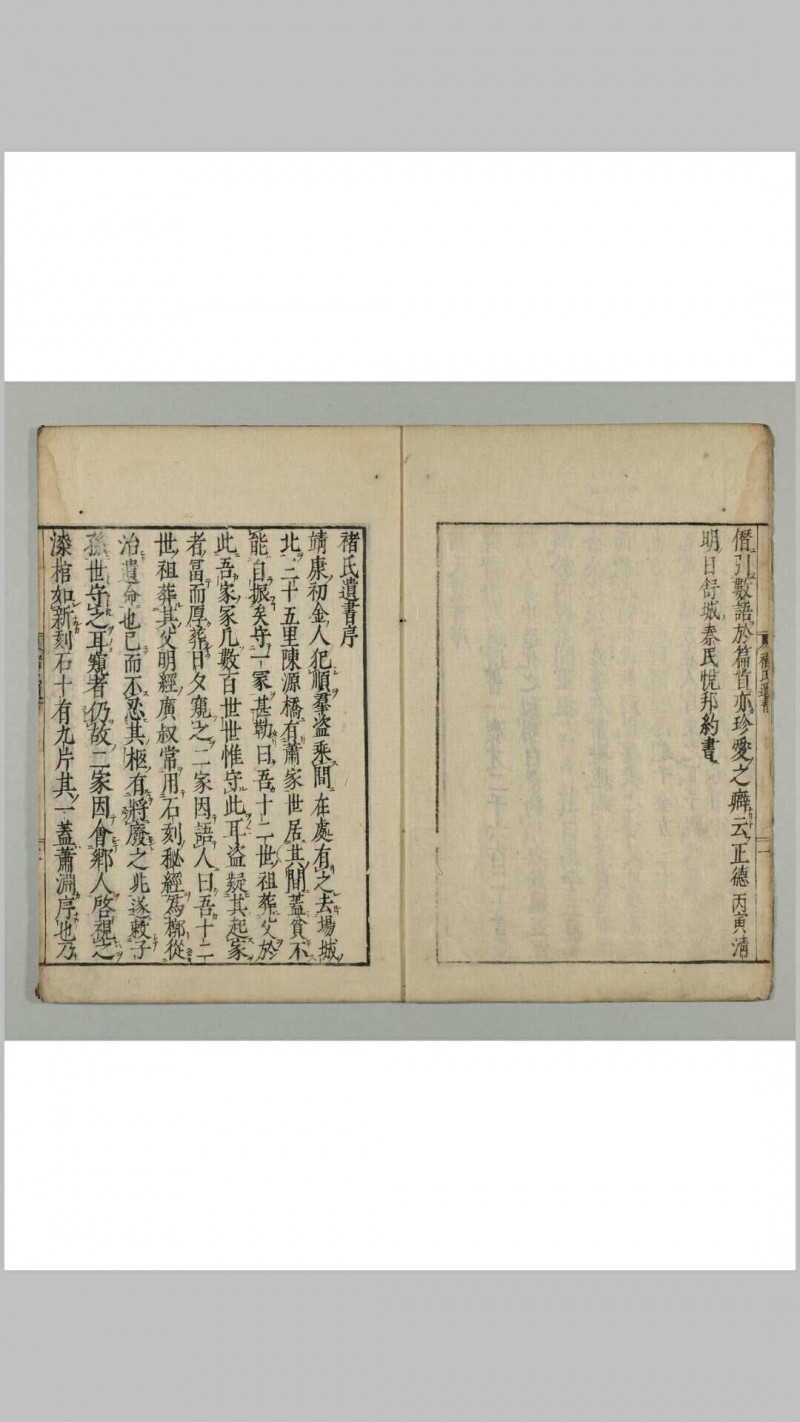 僭引數語於篇首亦珍愛之癖云正德丙寅清
明日舒城秦民悅邦約書
褚氏遺書序
靖康初金人犯順羣盗乘間在處有之去塲城
北二十五里陳源橋有蕭家世居其間蓋貧不
能自振矣守一冢甚勤曰吾十二世祖葬父於
此吾家冢几數百世世惟守此耳盗疑其起家
者冨而厚葬日夕窺之二家因語人曰吾十二
世祖葬其父明經廣叔常用石刻秘經爲槨從
治遺命也已而不忍其柩有將廢之兆遂敕子
孫世守之耳窺者仍故二家因會鄉人啓視之
漆棺如新刻石十有九片其一蓋蕭淵序也乃